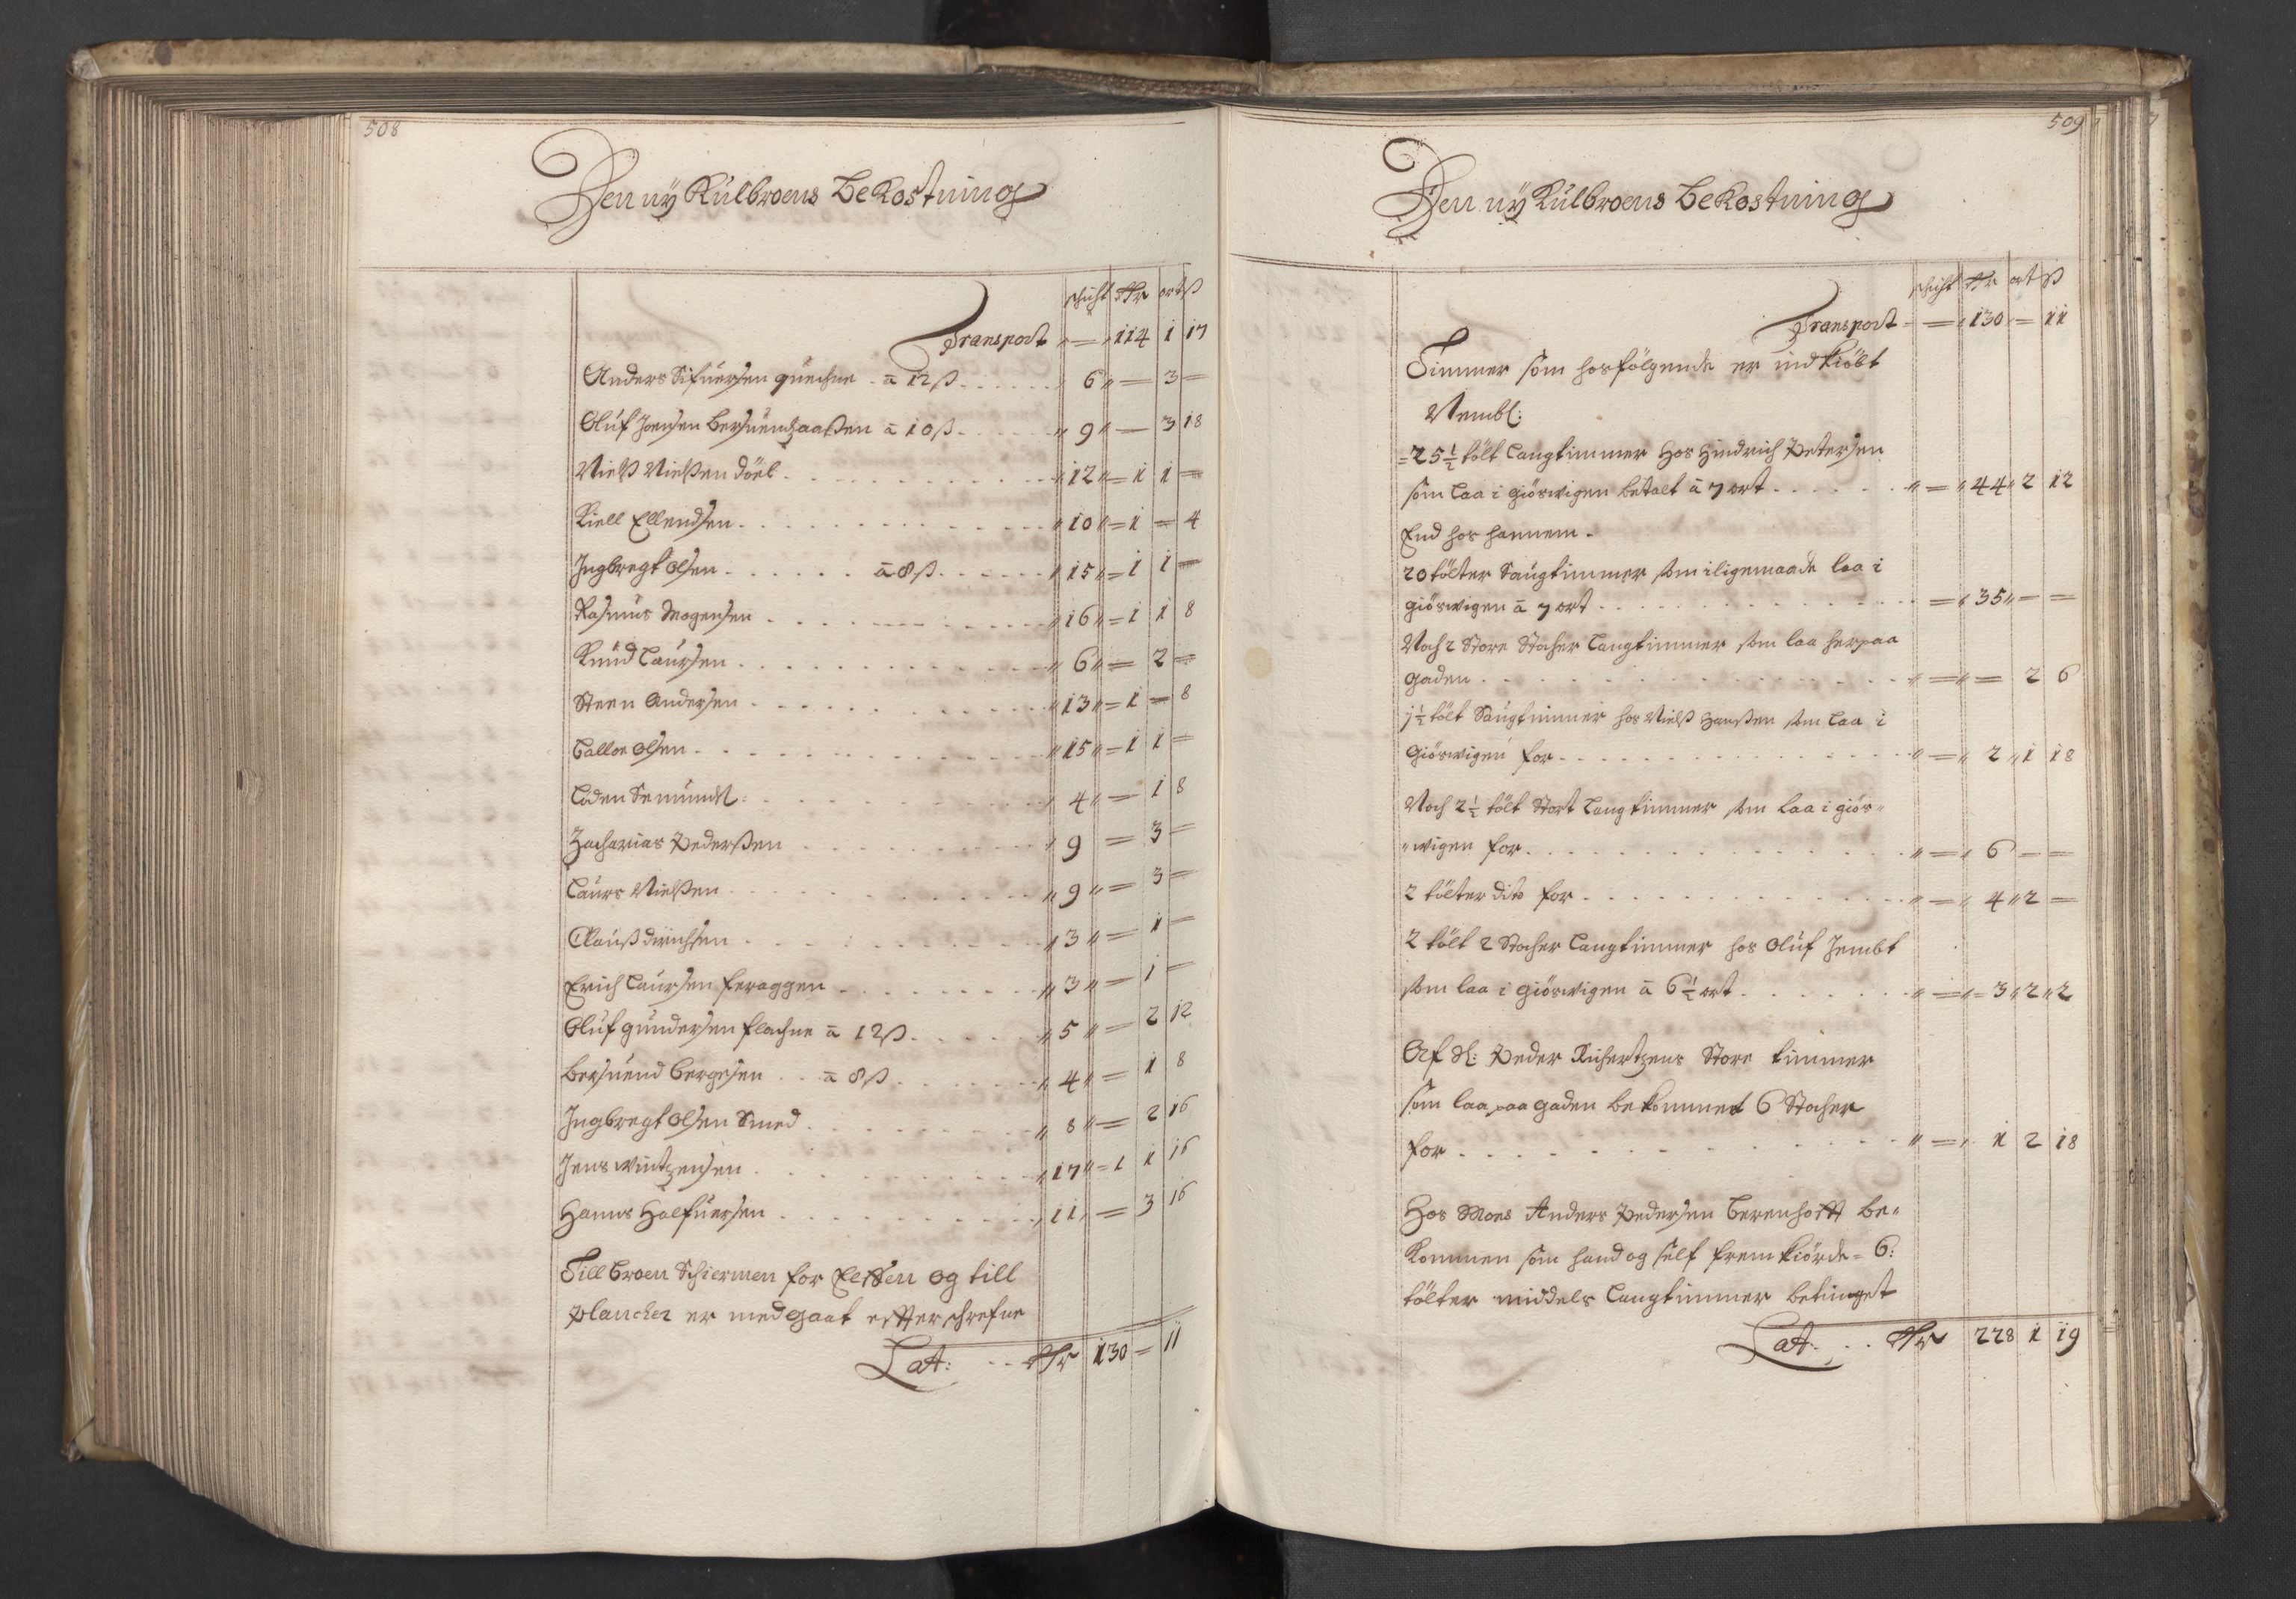 508
Den nÿ Kulbroens Bekostning
schicht Rdr ort ß
Transport „ = „ 114 1 17
Anders Sifuersen quechne . ā 12 ß . . . . . . „ 6 „ — 3 —
Oluf Joensen ā 10 ß . . . . . „ 9 „ — 3 18
Nielß Nielßen döel . . . . . . „ 12 „ = 1 1 =
Kiell Ellendsen . . . . . . „ 10 „ = 1 = 4
Jngbregt Olsen . . . . . . ā 8 ß . . . . . . „ 15 „ = 1 1 =
Rasmus Mogensen . . . . . . „ 16 „ = 1 1 8
Knud Laursen . . . . . . „ 6 „ = 2 =
Steen Andersen . . . . . . „ 13 „ = 1 = 8
Balloe Olsen . . . . . . „ 15 „ = 1 1 =
Loden Semundß: . . . . . . „ 4 „ = 1 8
Zacharias Pederßen . . . . . . „ 9 = 3 —
Laurs Nielßen . . . . . . „ 9 „ = 3 —
Clauß dirichsen . . . . . . „ 3 „ = 1 —
Erich Laursen feraggen . . . . . . „ 3 „ — 1 —
Oluf gundersen flachne ā 12 ß . . . . . „ 5 „ — 2 12
Bersuend Bergesen . . ā 8 ß . . . . . . „ 4 „ = 1 8
Jngbregt Olsen Smed . . . . . . „ 8 „ = 2 16
Jens wintzensen . . . . . . „ 17 „ = 1 1 16
Hanns Halfuersen . . . . . . „ 11 „ = 3 16
Till broen Schiermen for Elffen og till
Plancher er medgaat effterschrefne
Lat: . . Rdr 130 = 11
509
Den nÿ Kulbroens Bekostning
schicht Rdr ort ß
Transport = „ 130 = 11
Timmer som hos følgende er indkiöbt
Nembl:
= 25 ½ tölt Langtimmer Hos Hindrich Petersen
som Laa i giörwigen betalt ā 7 ort . . . . . . „ = „ 44 „ 2 12
End hos hannem .
20 tölter Saugtimmer som iligemaade laa i
giörwigen ā 7 ort . . . . . . = „ 35 „ — =
Noch 2 Store Stocher Langtimmer som laa her paa
gaden . . . . . . „ = „ = 2 6
1 ½ tölt Saugtimmer hos Nielß Hanßen som Laa i
Giörwigen for . . . . . . „ = „ 2 „ 1 18
Noch 2 ½ tölt Stort Langtimmer som laa i giör„
„wigen for . . . . . . „ = „ 6 — —
2 tölter dito for . . . . . . „ = „ 4 „ 2 =
2 tölt 2 Stocher Langtimmer hos Oluf Jembt
som laa i giörwigen ā 6 ½ ort . . . . . . „ = „ = 3 „ 2 „ 2
Af Sl: Peder Richertzens Store timmer
som laa paa gaden bekommet 6 Stocher
for . . . . . . „ = „ 1 2 18
Hos Mons Anders Pedersen Berenhofft be„
Kommen som hand og self fremkiörde = 6:
tölter middels Langtimmer betinget
Lat: . . Rdr 228 1 19